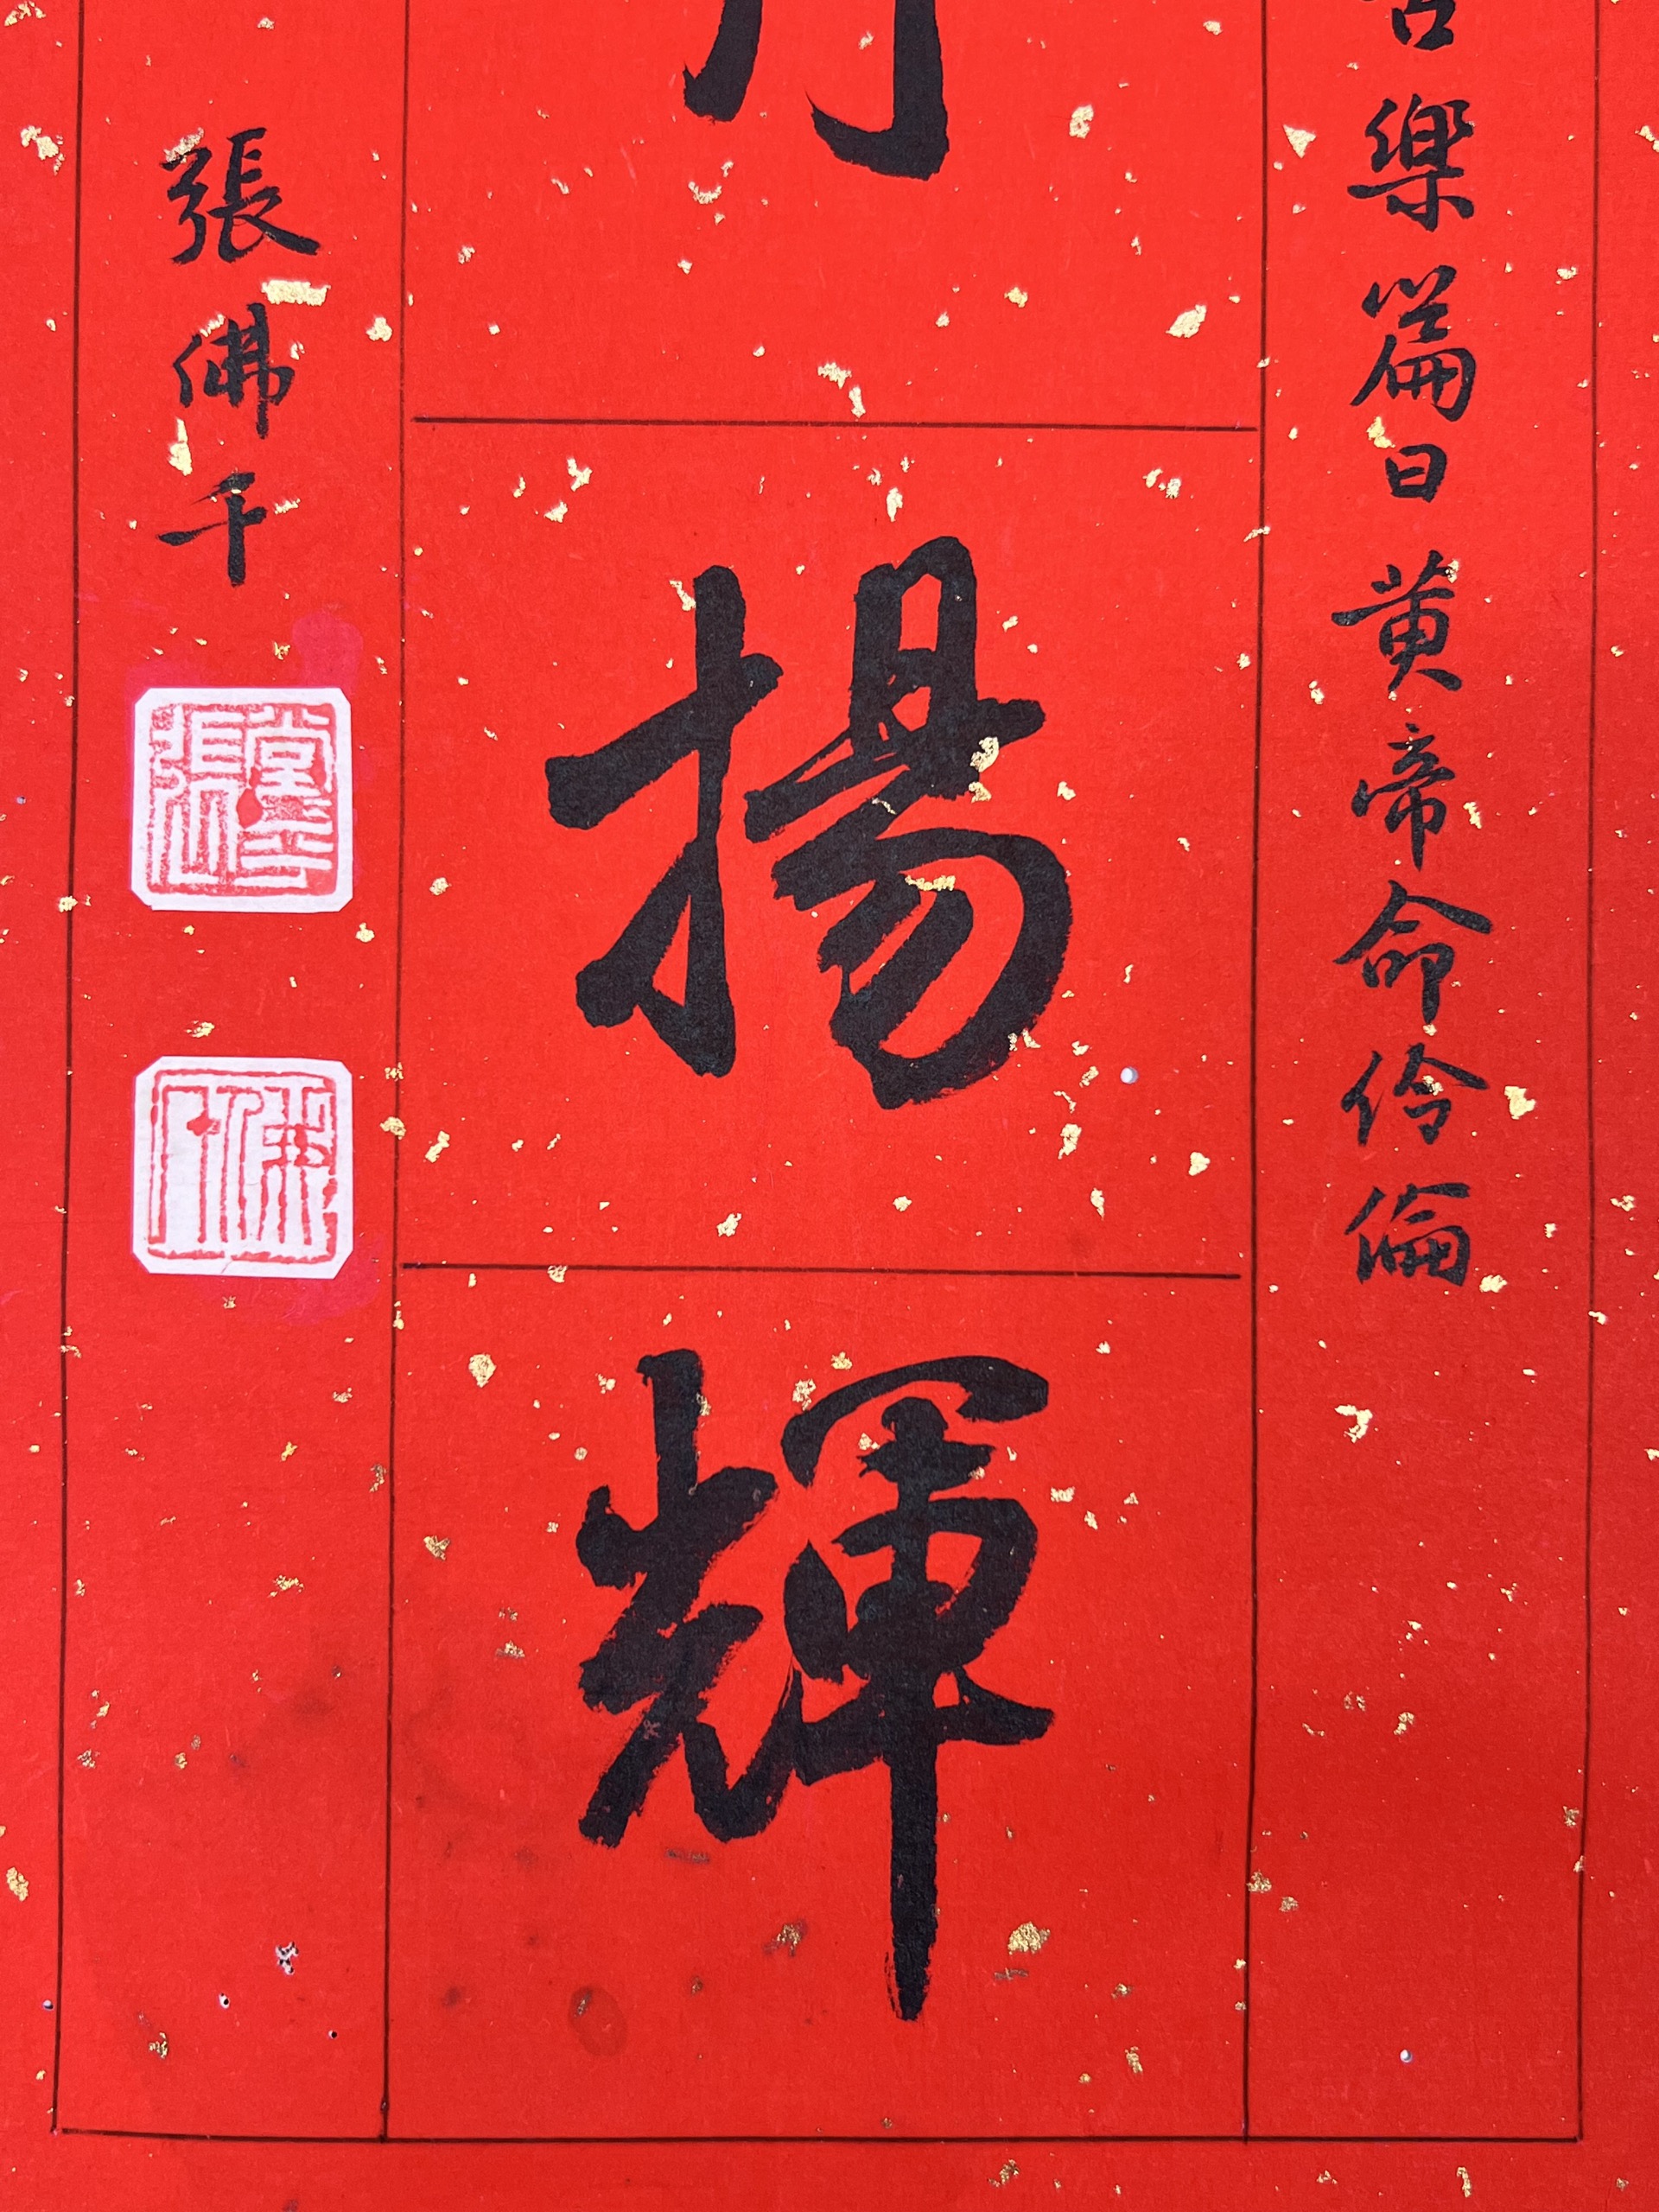 古樂篇曰黃帝命伶倫
揚輝
張佛千